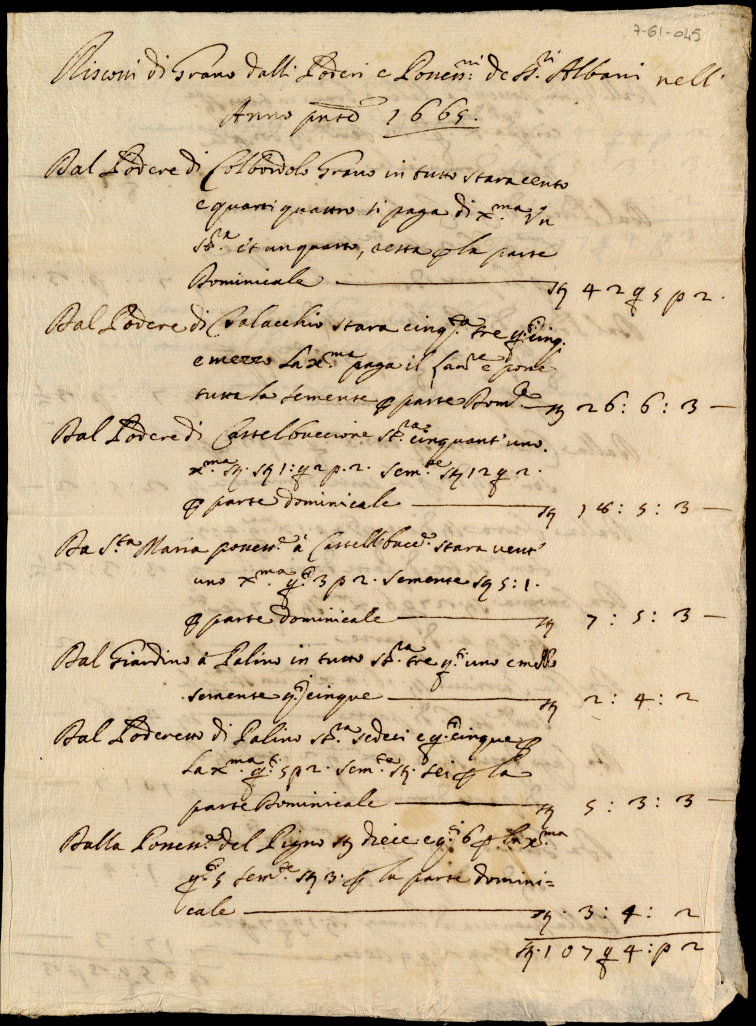 7-61-045
Risconi di Grano dalli Poderi e Possess.ni de SS.ri Albani nell'
Anno pnte 1665.
Dal Podere di Colbordolo Grano in tutto stara cento
e quarti quattro si paga di X.ma Un
St.a et un quarto, resta p la parte
Dominicale — st 42 q 5 p 2.
Dal Podere di Calacchio stara cinq.ta tre q.ti cinq.
e mezzo La x.ma paga il Lau.re e pone
tutta la semente p parte Dom.le — st 26: 6: 3 —
Dal Podere di Castelbuccione st.ra cinquant'uno.
x.ma st. st 1: q 2 p. 2. sem.te st 12 q 2.
p parte dominicale — st 18: 5: 3 —
Da S.ta Maria possess.e à Castellbucc.e stara vent'
uno x.ma q.ti 3 p 2. semente st 5: 1.
p parte dominicale — st 7: 5: 3 —
Dal Giardino à Palino in tutto st.ra tre q.ti uno e mezzo
semente q.ti cinque — st 2: 4: 2
Dal Poderetto di Palino st.ra sedeci e q.ti cinque p
La x.ma q.ti 5 p 2. sem.te st. sei p la
parte Dominicale — st 5: 3: 3 —
Dalla Possess.e del Pigno st diece e q.ti 6 p. la x.ma
q.ti 5 sem.te st 3. p la parte domini=
cale — st. 3: 4: 2
st. 107 q 4: p 2